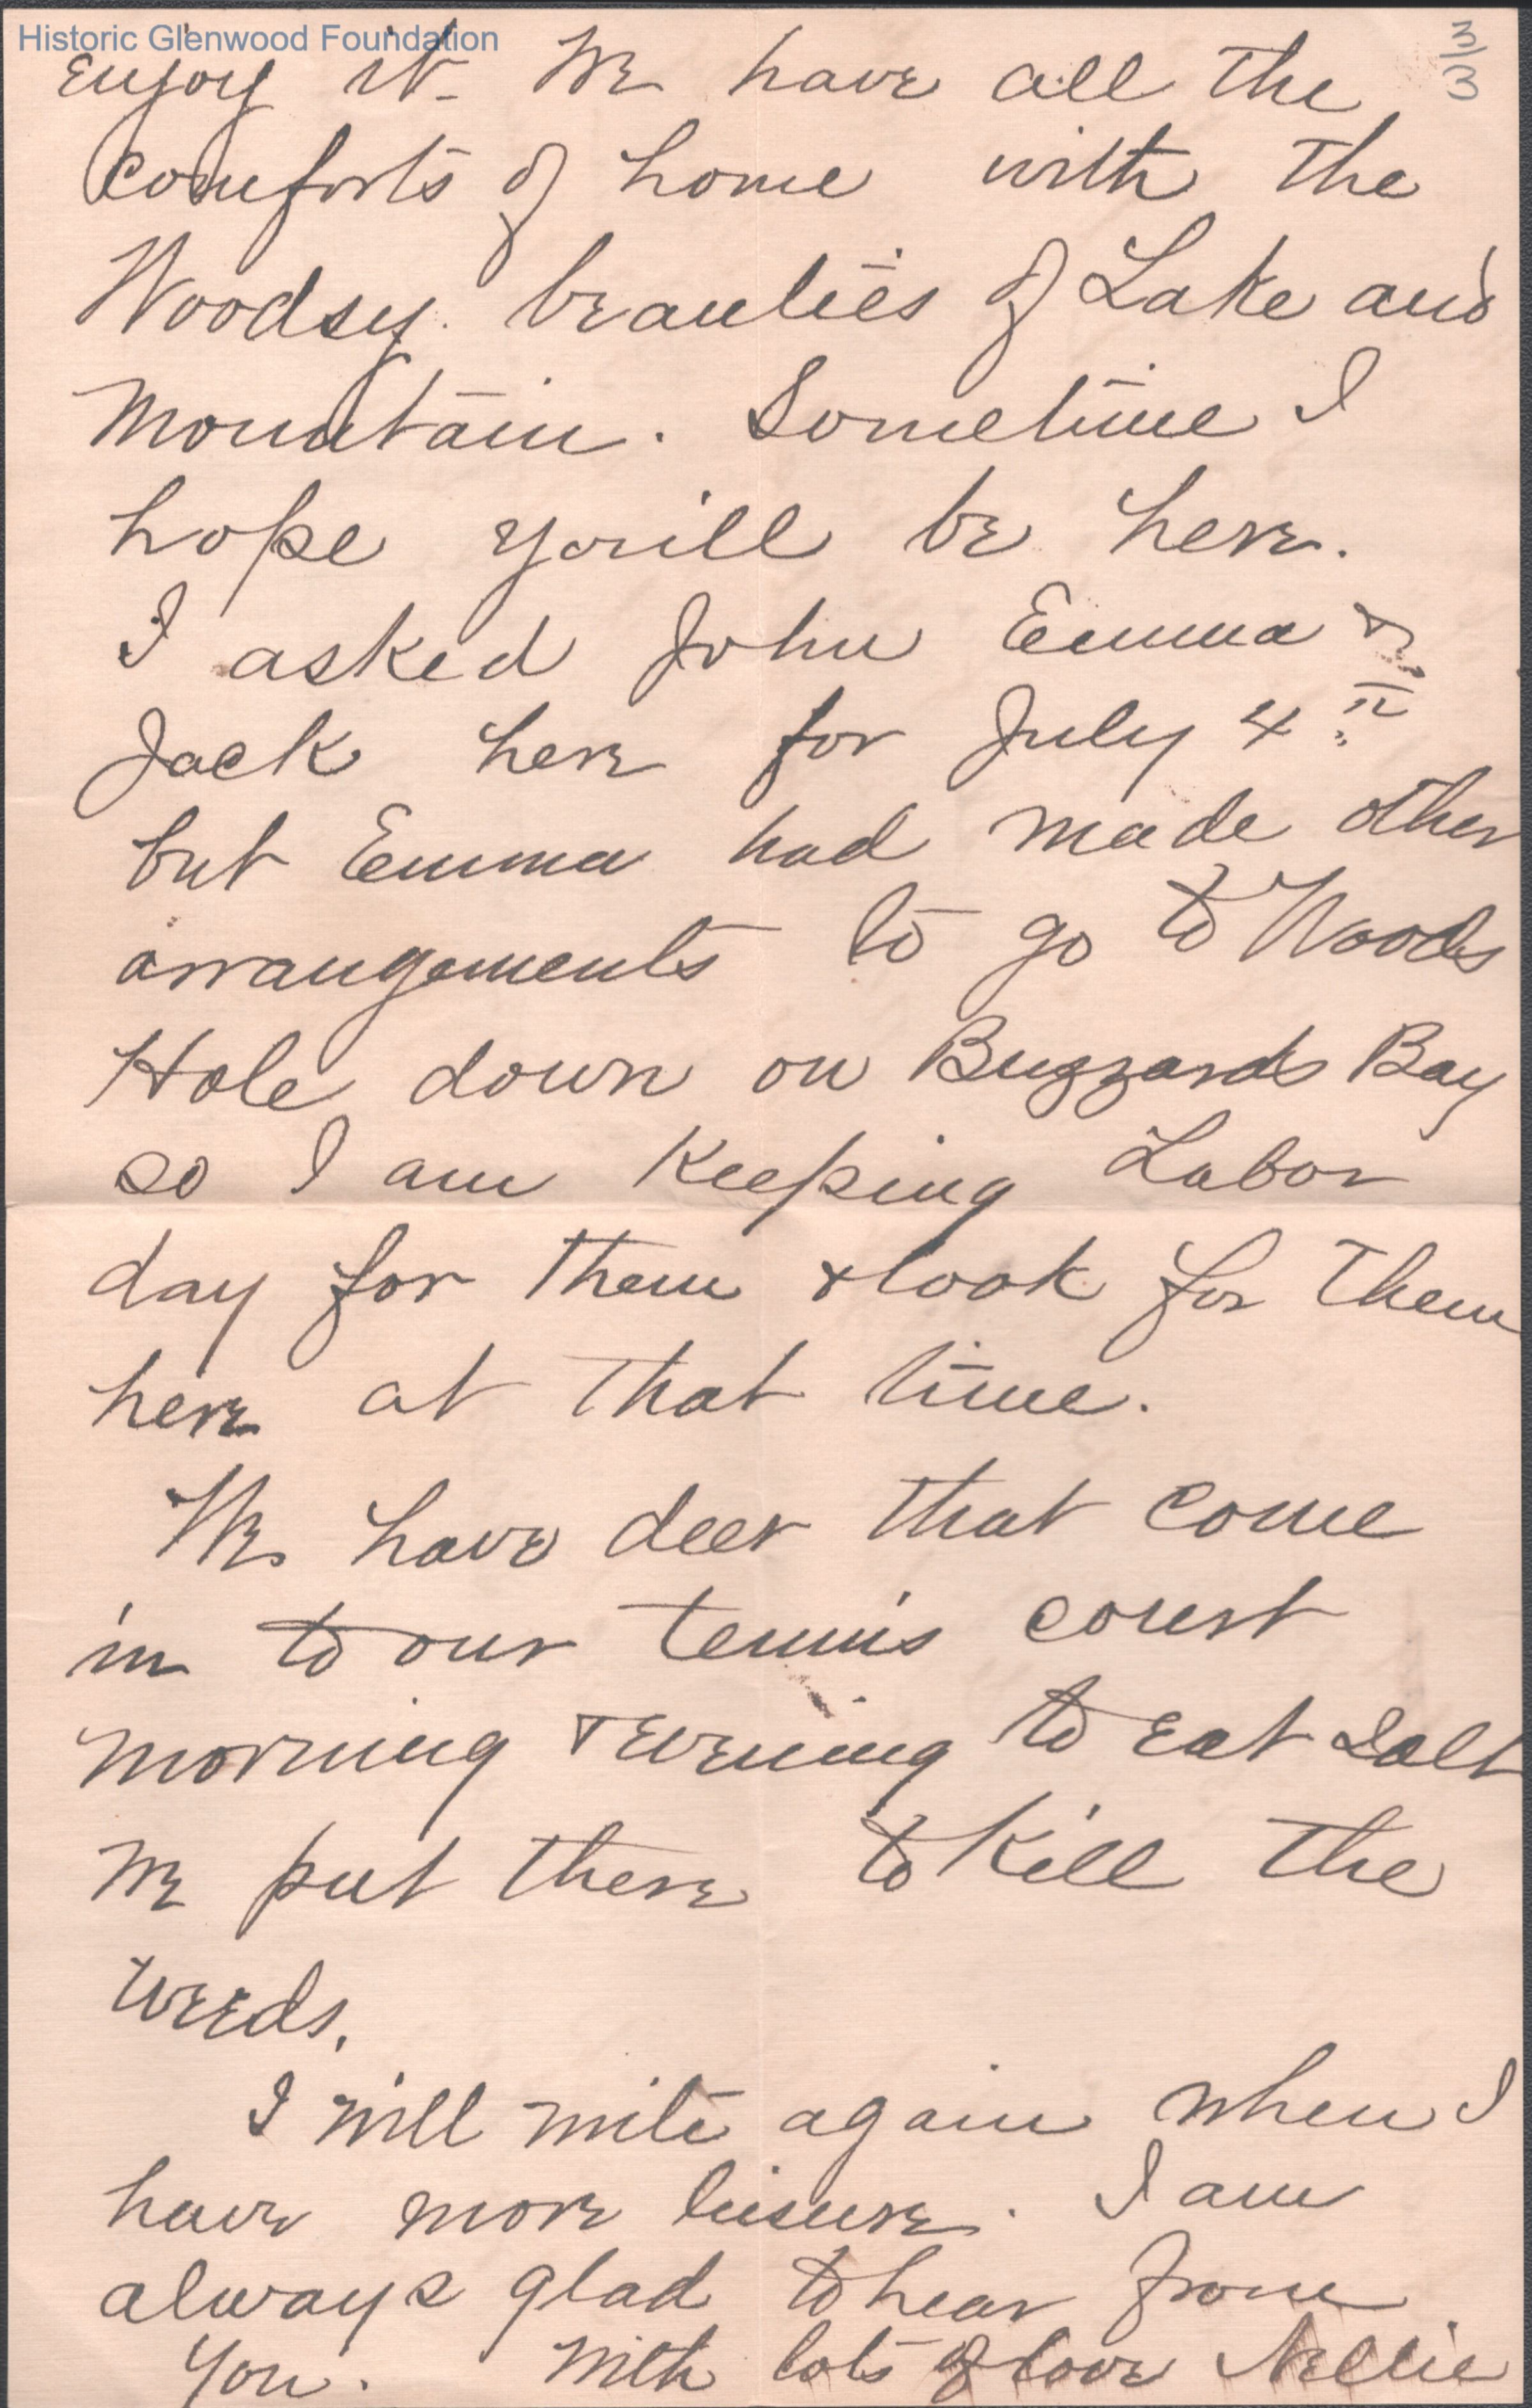 Historic Glenwood Foundation
3/3
enjoy it - We have all the
comforts of home with the
Woodsy beauties of Lake and
Mountain. Sometime I
hope you'll be here.
I asked John Emma &
Jack here for July 4th
but Emma had made other
arrangements to go to Woods
Hole down on Buzzards Bay
so I am keeping Labor
day for them & look for them
here at that time.
We have deer that come
in to our tennis court
morning & evening to eat salt
we put there to kill the
weeds.
I will write again when I
have more leisure. I am
always glad to hear from
you. With lots of love Nellie